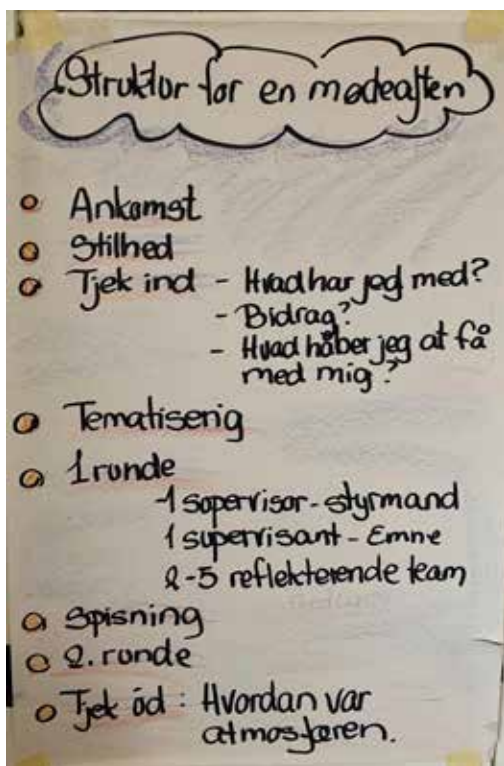 Struktur for en mødeaften
Ankomst
Stilhed
Tjek ind - Hvad har jeg med?
- Bidrag?
- Hvad håber jeg at få
med mig?
Tematiserig
1 runde
-1 supervisor - styrmand
1 supervisant - Emne
2-5 reflekterende team
Spisning
2. runde
Tjek ud : Hvordan var
atmosfæren.